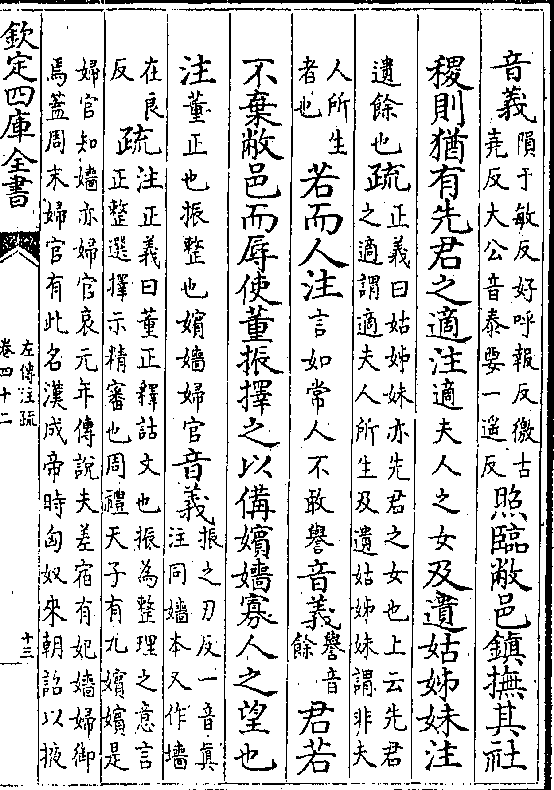 音義隕于敏反好呼報反徼古
堯反大公音泰要一遥反照臨敝邑鎮撫其社
稷則猶有先君之適注適夫人之女及遺姑姊妹注
遺餘也疏正義曰姑姊妹亦先君之女也上云先君
之適謂適夫人所生及遺姑姊妹謂非夫
人所生
者也若而人注言如常人不敢譽音義譽音
餘君若
不棄敝邑而辱使董振擇之以備嬪嬙寡人之望也
注董正也振整也嬪嬙婦官音義振之刃反一音真
注同嬙本又作墻
在良
反疏注正義曰董正釋詁文也振為整理之意言
正整選擇示精審也周禮天子有九嬪嬪是
婦官知嬙亦婦官哀元年傳說夫差宿有妃嬙婦御
焉蓋周末婦官有此名漢成帝時匈奴來朝詔以掖
欽定四庫全書
左傳注疏
卷四十二
十三